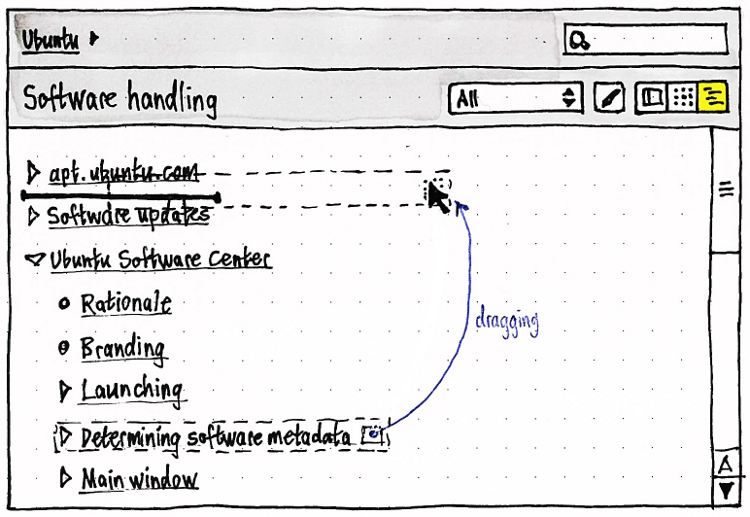 Ubuntu
Software handling
All
apt.ubuntu.com
Software updates
Ubuntu Software Center
Rationale
Branding
dragging
Launching
Determining software metadata
Main window